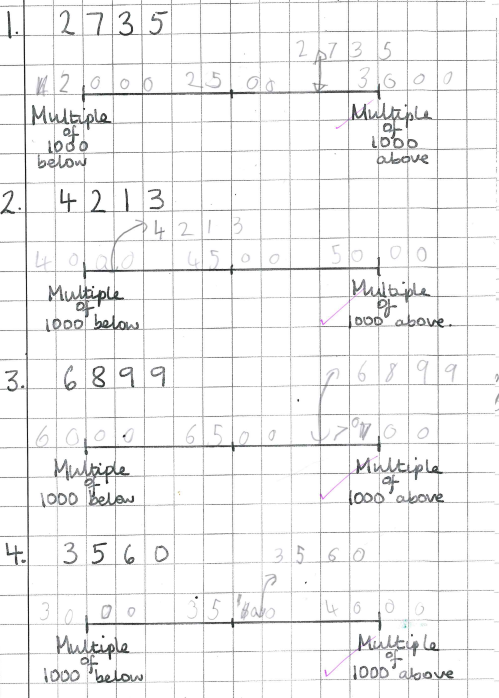 1. 2735
2735
2000 2500 3000
Multiple of 1000 below
Multiple of 1000 above
2. 4213
4213
4000 4500 5000
Multiple of 1000 below
Multiple of 1000 above.
3. 6899
6899
6000 6500 7000
Multiple of 1000 below
Multiple of 1000 above
4. 3560
3560
3000 3500 4000
Multiple of 1000 below
Multiple of 1000 above